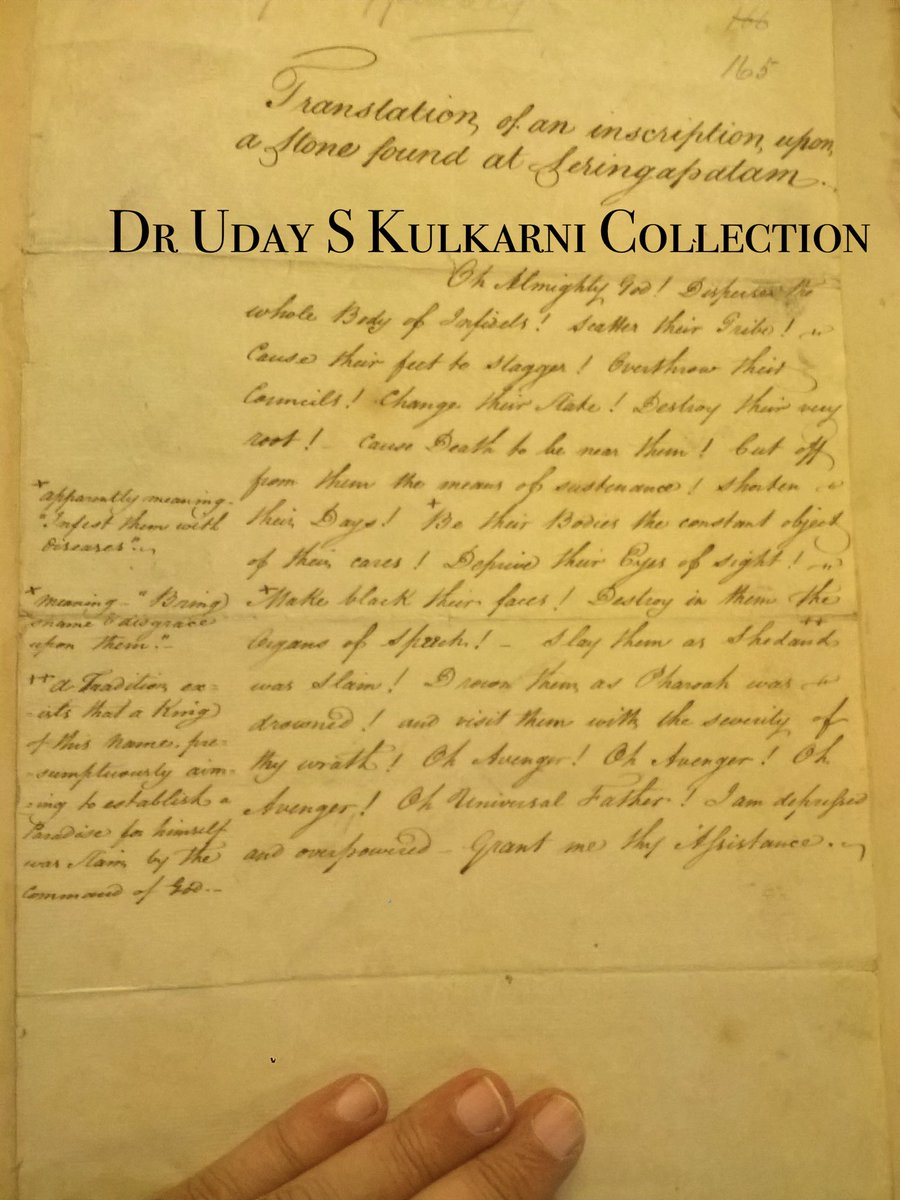 166
165
Translation of an inscription upon
a Stone found at Seringapatam.
DR UDAY S KULKARNI COLLECTION
Oh Almighty God! Disperse the
whole Body of Infidels! Scatter their Tribe!
Cause their feet to stagger! Overthrow their
Councils! Change their State! Destroy their very
root! - Cause Death to be near them! Cut off
from them the means of sustenance! Shorten
their Days! ˣBe their Bodies the constant object
of their cares! Deprive their Eyes of sight!
ˣMake black their faces! Destroy in them the
Organs of Speech! - Slay them as Shedaud ⁺⁺
was Slain! Drown them as Pharoah was
drowned! and visit them with the severity of
thy wrath! Oh Avenger! Oh Avenger! Oh
Avenger! Oh Universal Father! I am depressed
and overpowered - Grant me thy Assistance.
ˣapparently meaning -
"Infest them with
diseases".
ˣmeaning - "Bring
shame & disgrace
upon them." -
⁺⁺a Tradition ex-
-ists that a King
of this name, pre-
-sumptuously aim-
-ing to establish a
Paradise for himself
was slain by the
Command of God. -